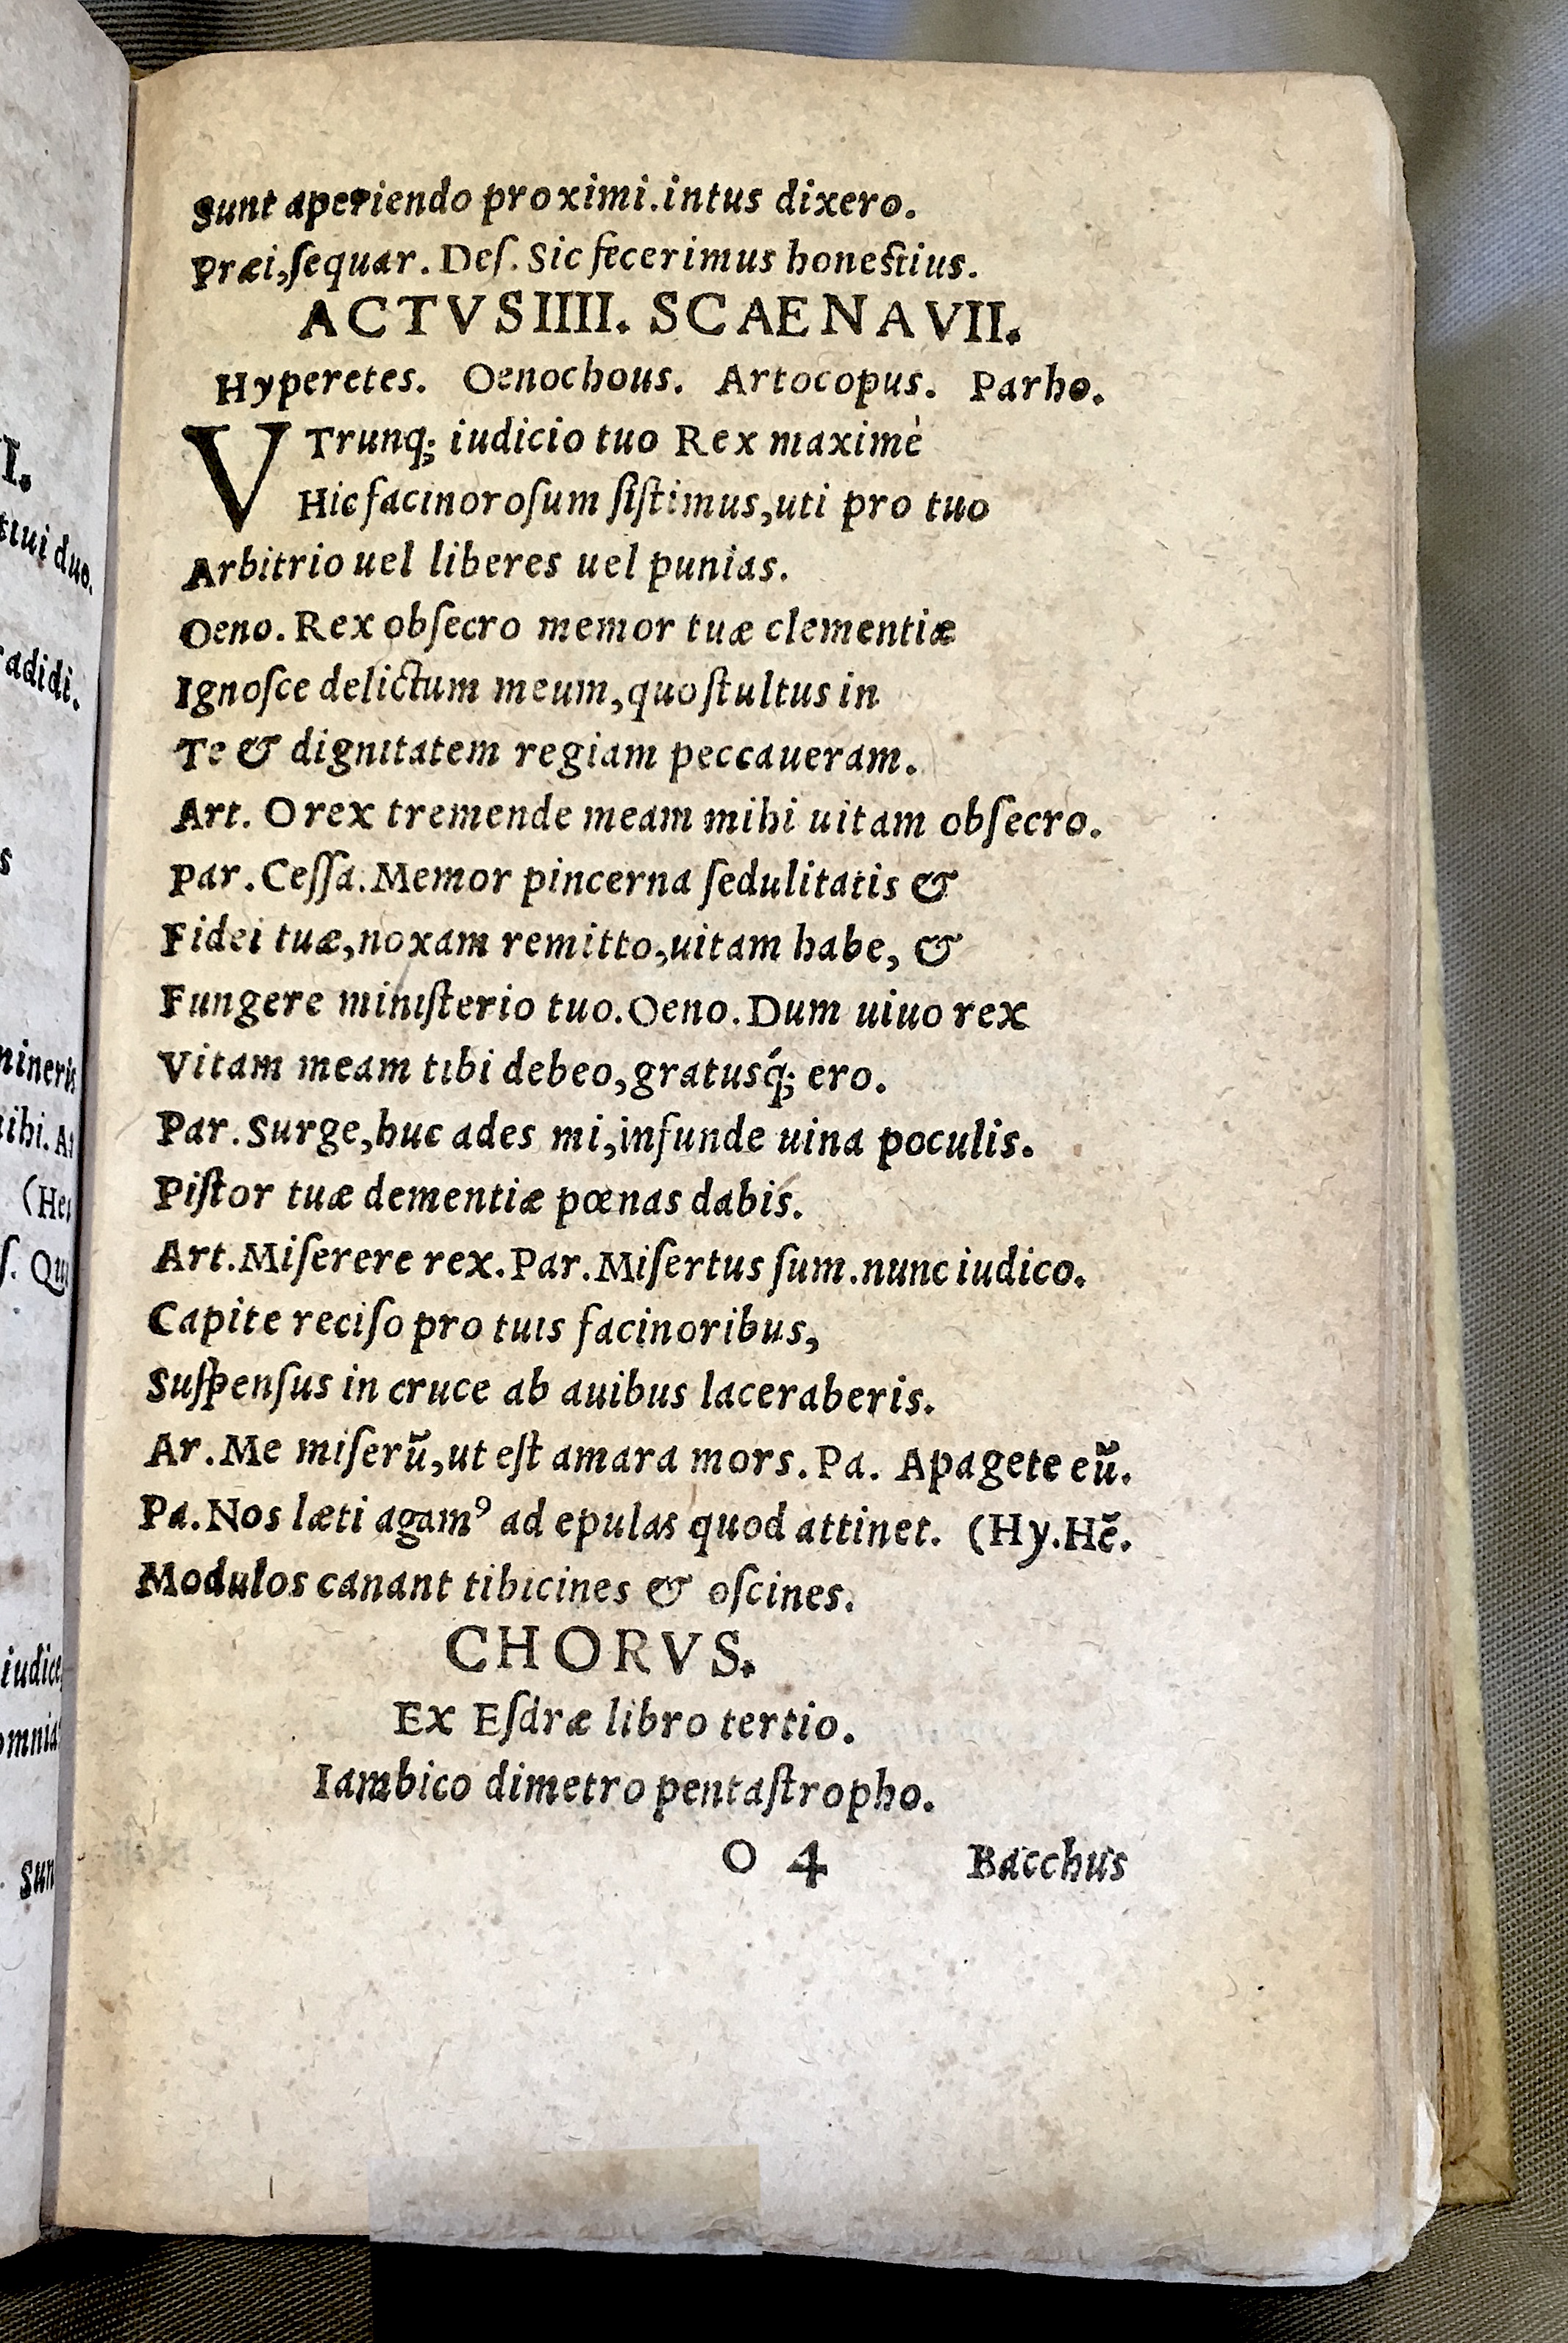 Sunt aperiendo proximi.intus dixero.
Præi,ſequar. Deſ. Sic fecerimus honeſtius.
ACTVS IIII. SCAENA VII.
Hyperetes. Oenochous. Artocopus. Parho.
VTrunq; iudicio tuo Rex maximè
Hic facinoroſum ſiſtimus,uti pro tuo
Arbitrio uel liberes uel punias.
Oeno. Rex obſecro memor tuæ clementiæ
Ignoſce delictum meum,quo ſtultus in
Te & dignitatem regiam peccaueram.
Art. O rex tremende meam mihi uitam obſecro.
Par. Ceſſa. Memor pincerna ſedulitatis &
Fidei tuæ,noxam remitto,uitam habe, &
Fungere miniſterio tuo. Oeno. Dum uiuo rex
Vitam meam tibi debeo,gratusq́; ero.
Par. Surge,huc ades mi,infunde uina poculis.
Piſtor tuæ dementiæ pœnas dabis.
Art. Miſerere rex. Par. Miſertus ſum.nunc iudico.
Capite reciſo pro tuis facinoribus,
Suſpenſus in cruce ab auibus laceraberis.
Ar. Me miſerũ,ut eſt amara mors. Pa. Apagete eũ.
Pa. Nos læti agamꝰ ad epulas quod attinet. (Hy. Hẽ.
Modulos canant tibicines & oſcines.
CHORVS.
Ex Eſdræ libro tertio.
Iambico dimetro pentaſtropho.
O 4 Bacchus
I.
tiui duo.
radidi.
s
mineris
ihi. At
ſ. Qu
iudice
omnia
Sun